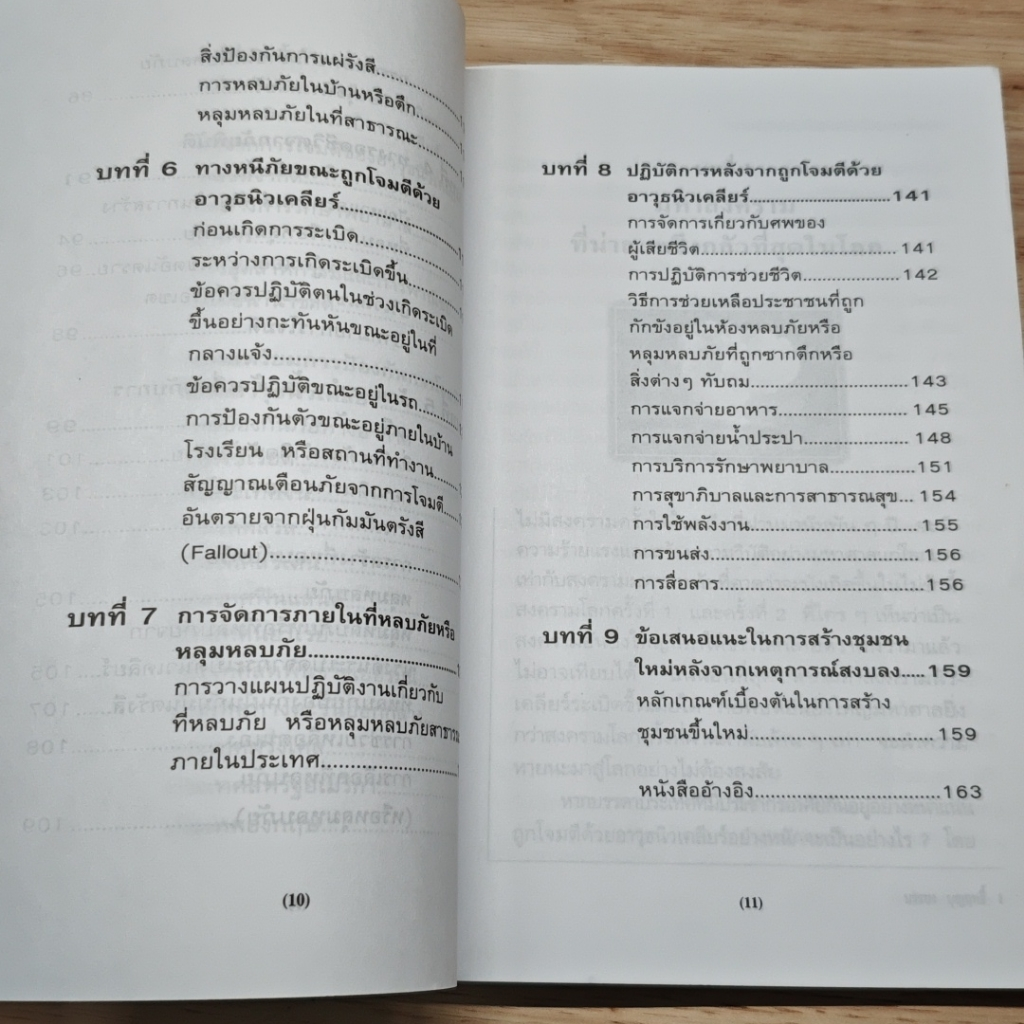 สิ่งป้องกันการแผ่รังสี................
การหลบภัยในบ้านหรือตึก........
หลุมหลบภัยในที่สาธารณะ.......
บทที่ 6 ทางหนีภัยขณะถูกโจมตีด้วย
อาวุธนิวเคลียร์.....................
ก่อนเกิดการระเบิด.................
ระหว่างการเกิดระเบิดขึ้น........
ข้อควรปฏิบัติตนในช่วงเกิดระเบิด
ขึ้นอย่างกะทันหันขณะอยู่ในที่
กลางแจ้ง...............................
ข้อควรปฏิบัติขณะอยู่ในรถ......
การป้องกันตัวขณะอยู่ภายในบ้าน
โรงเรียน หรือสถานที่ทำงาน....
สัญญาณเตือนภัยจากการโจมตี...
อันตรายจากฝุ่นกัมมันตรังสี
(Fallout)................................
บทที่ 7 การจัดการภายในที่หลบภัยหรือ
หลุมหลบภัย.........................
การวางแผนปฏิบัติงานเกี่ยวกับ
ที่หลบภัย หรือหลุมหลบภัยสาธารณ
ภายในประเทศ.......................
(10)
บทที่ 8 ปฏิบัติการหลังจากถูกโจมตีด้วย
อาวุธนิวเคลียร์.............................141
การจัดการเกี่ยวกับศพของ
ผู้เสียชีวิต.................................... 141
การปฏิบัติการช่วยชีวิต.................. 142
วิธีการช่วยเหลือประชาชนที่ถูก
กักขังอยู่ในห้องหลบภัยหรือ
หลุมหลบภัยที่ถูกซากตึกหรือ
สิ่งต่างๆ ทับถม.............................143
การแจกจ่ายอาหาร....................... 145
การแจกจ่ายน้ำประปา................... 148
การบริการรักษาพยาบาล...............151
การสุขาภิบาลและการสาธารณสุข... 154
การใช้พลังงาน............................. 155
การขนส่ง..................................... 156
การสื่อสาร....................................156
บทที่ 9 ข้อเสนอแนะในการสร้างชุมชน
ใหม่หลังจากเหตุการณ์สงบลง.....159
หลักเกณฑ์เบื้องต้นในการสร้าง
ชุมชนขึ้นใหม่............................... 159
หนังสืออ้างอิง...............................163
(11)